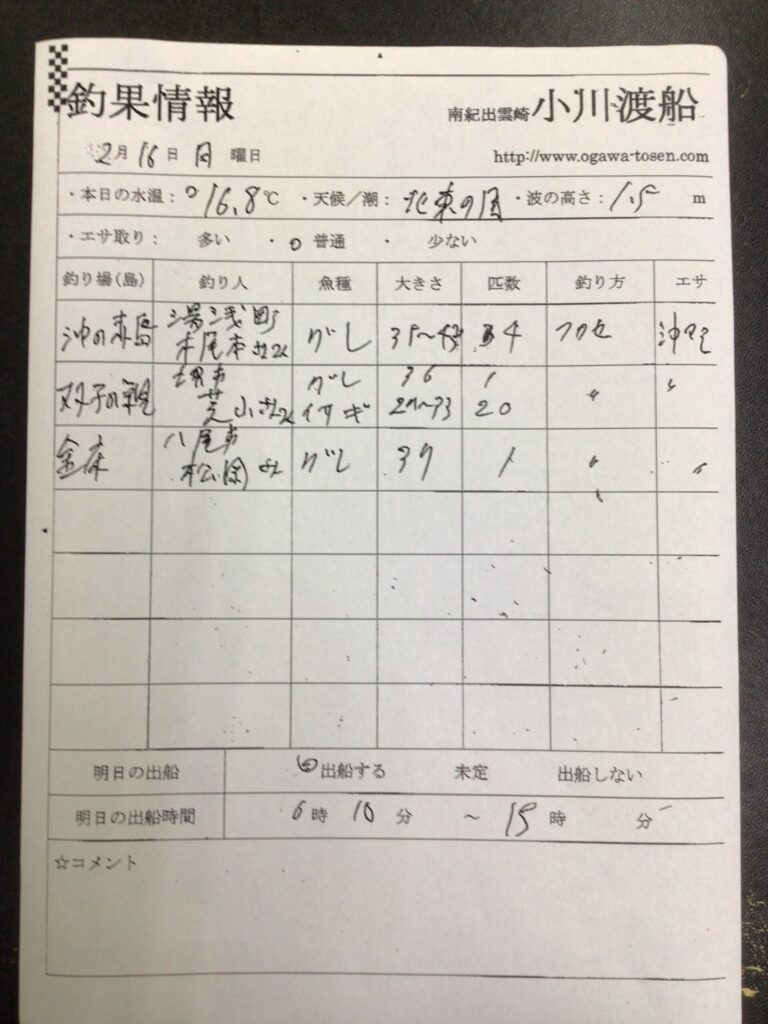 釣果情報
南紀出雲崎 小川渡船
2月 16日 月 曜日
http://www.ogawa-tosen.com
・本日の水温： 16.8℃ ・天候／潮： 北東の風 ・波の高さ： 1.5 m
・エサ取り： 多い ・ ○ 普通 ・ 少ない
釣り場(島) 釣り人 魚種 大きさ 匹数 釣り方 エサ
湯浅町
沖の赤島 グレ 4 フカセ
堺市 グレ 36 1
双子の親 イサギ 20 〃 〃
八尾市
金床 グレ 37 1 〃 〃
明日の出船 ○出船する 未定 出船しない
明日の出船時間 6時 10分 ～ 15時 分
☆コメント